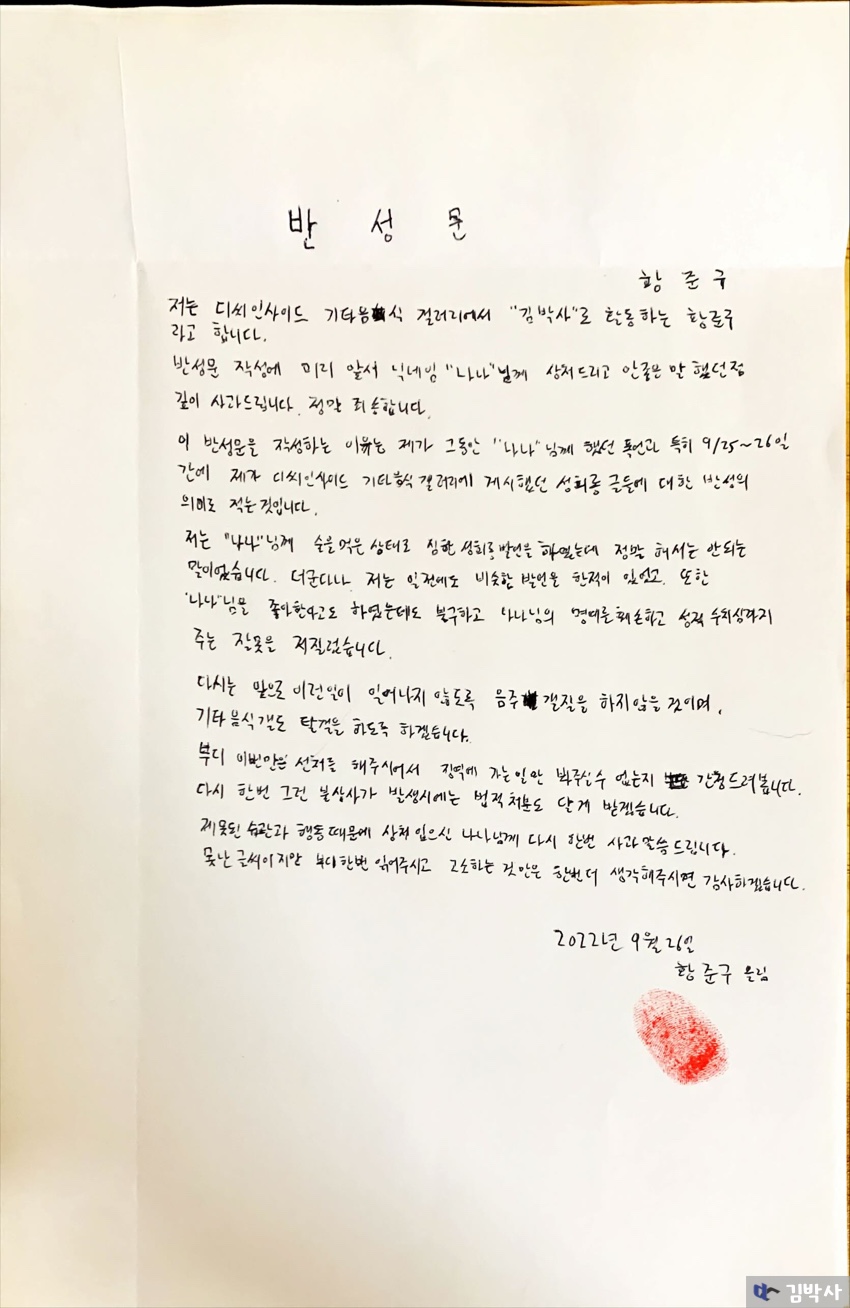 반 성 문
황 준 구
저는 디씨인사이드 기타음식 갤러리에서 "김박사"로 활동하는 황준구
라고 합니다.
반성문 작성에 미리 앞서 닉네임 "나나"님께 상처드리고 안좋은 말 했던점
깊이 사과드립니다. 정말 죄송합니다.
이 반성문을 작성하는 이유는 제가 그동안 "나나"님께 했던 폭언과 특히 9/25~26일
간에 제가 디씨인사이드 기타음식 갤러리에 게시했던 성희롱 글들에 대한 반성의
의미로 적는것입니다.
저는 "나나"님께 술을먹은 상태로 심한 성희롱발언을 하였는데 정말 해서는 안되는
말이었습니다. 더군다나 저는 일전에도 비슷한 발언을 한적이 있었고, 또한
"나나"님을 좋아한다고도 하였는데도 불구하고 나나님의 명예를 훼손하고 성적 수치심까지
주는 잘못을 저질렀습니다.
다시는 앞으로 이런일이 일어나지 않도록 음주 갤질을 하지않을 것이며,
기타음식갤도 탈갤을 하도록 하겠습니다.
부디 이번만은 선처를 해주시어서 징역에 가는일만 봐주실수 없는지 간청드려봅니다.
다시 한번 그런 불상사가 발생시에는 법적처분도 달게 받겠습니다.
제 못된 습관과 행동때문에 상처 입으신 나나님께 다시 한번 사과말씀드립니다.
못난 글씨이지만 부디한번 읽어주시고 고소하는 것만은 한번더 생각해주시면 감사하겠습니다.
2022년 9월 26일
황준구 올림
김박사